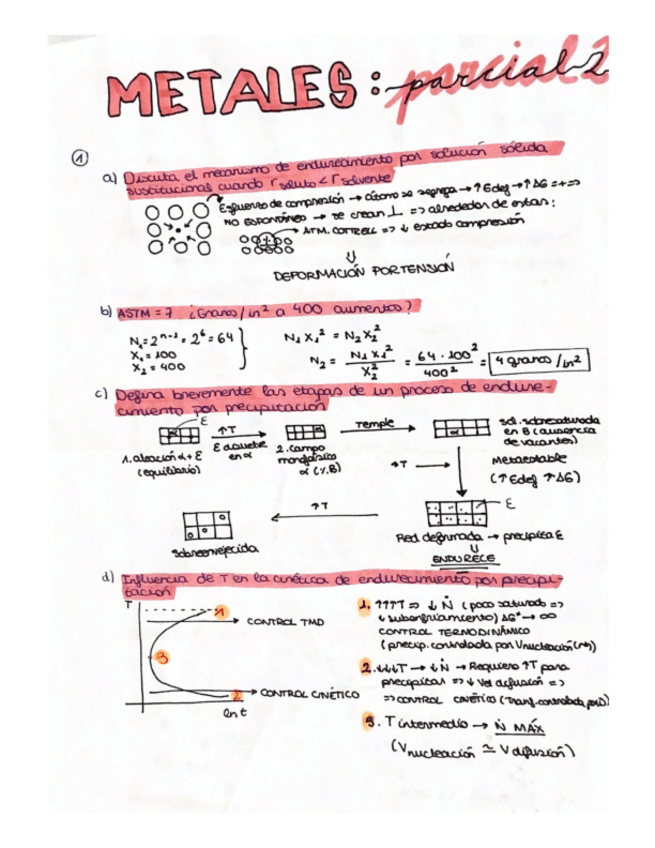 METALES: parcial 2
1
a) Discuta el mecanismo de endurecimiento por solución sólida
sustitucional cuando r soluto < r solvente
Esfuerzo de compresión → átomo se segrega → ↑ Edef → ↑ ΔG = + =>
NO ESPONTÁNEO → se crean ⊥ => alrededor de estas:
ATM. COTTRELL => ↓ estado compresión
⇓
DEFORMACIÓN POR TENSIÓN
b) ASTM = 7 ¿Granos/in² a 400 aumentos?
N₁ = 2ⁿ⁻¹ = 2⁶ = 64
X₁ = 100
X₂ = 400
N₁ X₁² = N₂ X₂²
N₂ = N₁ X₁² / X₂² = 64 · 100² / 400² = 4 granos/in²
c) Defina brevemente las etapas de un proceso de endure-
cimiento por precipitación
ε
1. aleación α + ε
(equilibrio)
↑T
ε disuelve
en α
2. campo
monofásico
α (% B)
Temple
α
sol. sobresaturada
en B (ausencia
de vacantes)
↑T →
Metaestable
(↑ Edef ↑ ΔG)
ε
Red deformada → precipita ε
⇓
ENDURECE
↑T
Sobreenvejecida
d) Influencia de T en la cinética de endurecimiento por precipi-
tación
T
1
CONTROL TMD
3
2
CONTROL CINÉTICO
ln t
1. ↑↑↑T => ↓ Ṅ (poco saturado =>
↓ subenfriamiento) ΔG* → ∞
CONTROL TERMODINÁMICO
(precip. controlada por Vnucleación
2. ↓↓↓T → ↓ Ṅ → Requiero ↑T para
precipitar => ↓ Vel difusión =>
=> CONTROL CINÉTICO (Transf. controlada por D)
3. T intermedio → Ṅ MÁX
(Vnucleación ≃ Vdifusión)